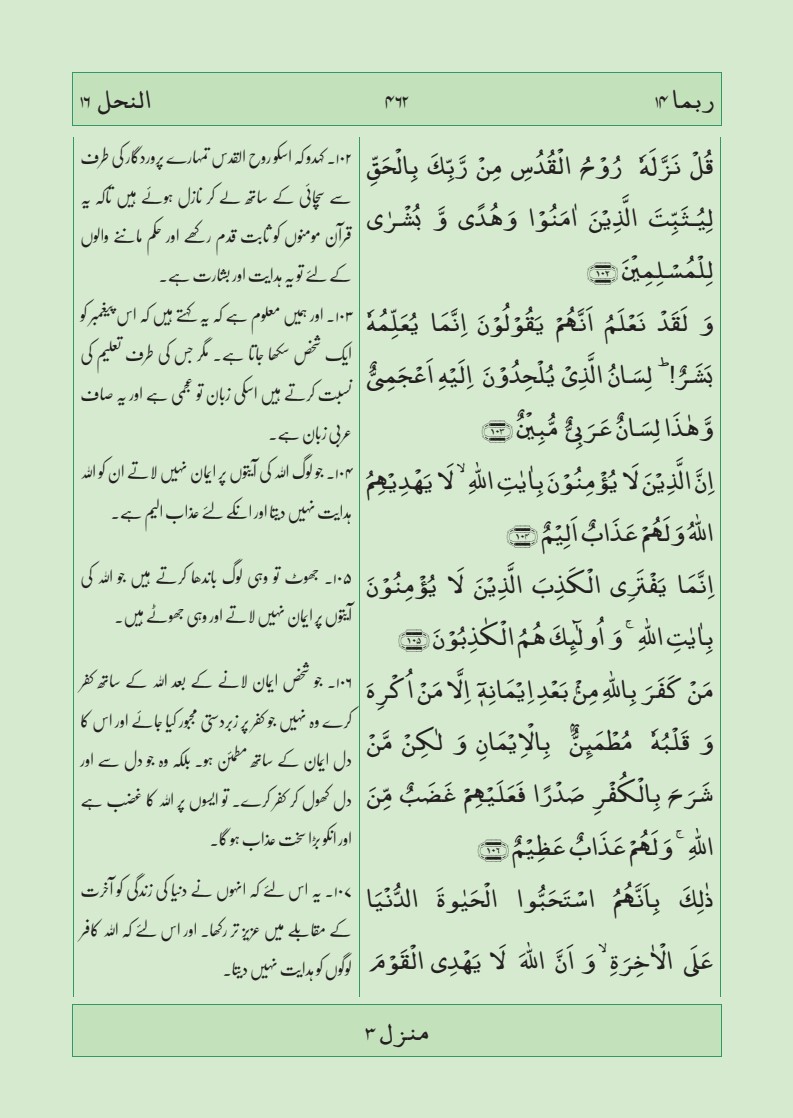 ربما ۱۴
۴۶۲
النحل ۱۶
قُلْ نَزَّلَهٗ رُوْحُ الْقُدُسِ مِنْ رَّبِّكَ بِالْحَقِّ
لِيُـثَبِّتَ الَّذِيْنَ اٰمَنُوْا وَهُدًى وَّ بُشْـرٰى
لِلْمُسْـلِمِيْنَ ۱۰۲
وَ لَقَدْ نَعْلَمُ اَنَّهُمْ يَقُوْلُوْنَ اِنَّمَا يُعَلِّمُهٗ
بَشَرٌ! ؕ لِسَانُ الَّذِىْ يُلْحِدُوْنَ اِلَيْهِ اَعْجَمِىٌّ
وَّ هٰذَا لِسَانٌ عَرَبِىٌّ مُّبِيْنٌ ۱۰۳
اِنَّ الَّذِيْنَ لَا يُؤْمِنُوْنَ بِاٰيٰتِ اللّٰهِ ۙ لَا يَهْدِيْهِمُ
اللّٰهُ وَ لَهُمْ عَذَابٌ اَلِيْمٌ ۱۰۴
اِنَّمَا يَفْتَرِى الْكَذِبَ الَّذِيْنَ لَا يُؤْمِنُوْنَ
بِاٰيٰتِ اللّٰهِ ۚ وَ اُولٰٓئِكَ هُمُ الْكٰذِبُوْنَ ۱۰۵
مَنْ كَفَرَ بِاللّٰهِ مِنْۢ بَعْدِ اِيْمَانِهٖۤ اِلَّا مَنْ اُكْرِهَ
وَ قَلْبُهٗ مُطْمَئِنٌّۢ بِالْاِيْمَانِ وَ لٰكِنْ مَّنْ
شَرَحَ بِالْكُفْرِ صَدْرًا فَعَلَيْهِمْ غَضَبٌ مِّنَ
اللّٰهِ ۚ وَ لَهُمْ عَذَابٌ عَظِيْمٌ ۱۰۶
ذٰلِكَ بِاَنَّهُمُ اسْتَحَبُّوا الْحَيٰوةَ الدُّنْيَا
عَلَى الْاٰخِرَةِ ۙ وَ اَنَّ اللّٰهَ لَا يَهْدِى الْقَوْمَ
۱۰۲۔ کہدو کہ اسکو روح القدس تمہارے پروردگار کی طرف
سے سچائی کے ساتھ لے کر نازل ہوئے ہیں تاکہ یہ
قرآن مومنوں کو ثابت قدم رکھے اور حکم ماننے والوں
کے لئے تو یہ ہدایت اور بشارت ہے۔
۱۰۳۔ اور ہمیں معلوم ہے کہ یہ کہتے ہیں کہ اس پیغمبر کو
ایک شخص سکھا جاتا ہے۔ مگر جس کی طرف تعلیم کی
نسبت کرتے ہیں اسکی زبان تو عجمی ہے اور یہ صاف
عربی زبان ہے۔
۱۰۴۔ جو لوگ اللہ کی آیتوں پر ایمان نہیں لاتے ان کو اللہ
ہدایت نہیں دیتا اور انکے لئے عذاب الیم ہے۔
۱۰۵۔ جھوٹ تو وہی لوگ باندھا کرتے ہیں جو اللہ کی
آیتوں پر ایمان نہیں لاتے اور وہی جھوٹے ہیں۔
۱۰۶۔ جو شخص ایمان لانے کے بعد اللہ کے ساتھ کفر
کرے وہ نہیں جو کفر پر زبردستی مجبور کیا جائے اور اس کا
دل ایمان کے ساتھ مطمئن ہو۔ بلکہ وہ جو دل سے اور
دل کھول کر کفر کرے۔ تو ایسوں پر اللہ کا غضب ہے
اور انکو بڑا سخت عذاب ہو گا۔
۱۰۷۔ یہ اس لئے کہ انہوں نے دنیا کی زندگی کو آخرت
کے مقابلے میں عزیز تر رکھا۔ اور اس لئے کہ اللہ کافر
لوگوں کو ہدایت نہیں دیتا۔
منزل ۳